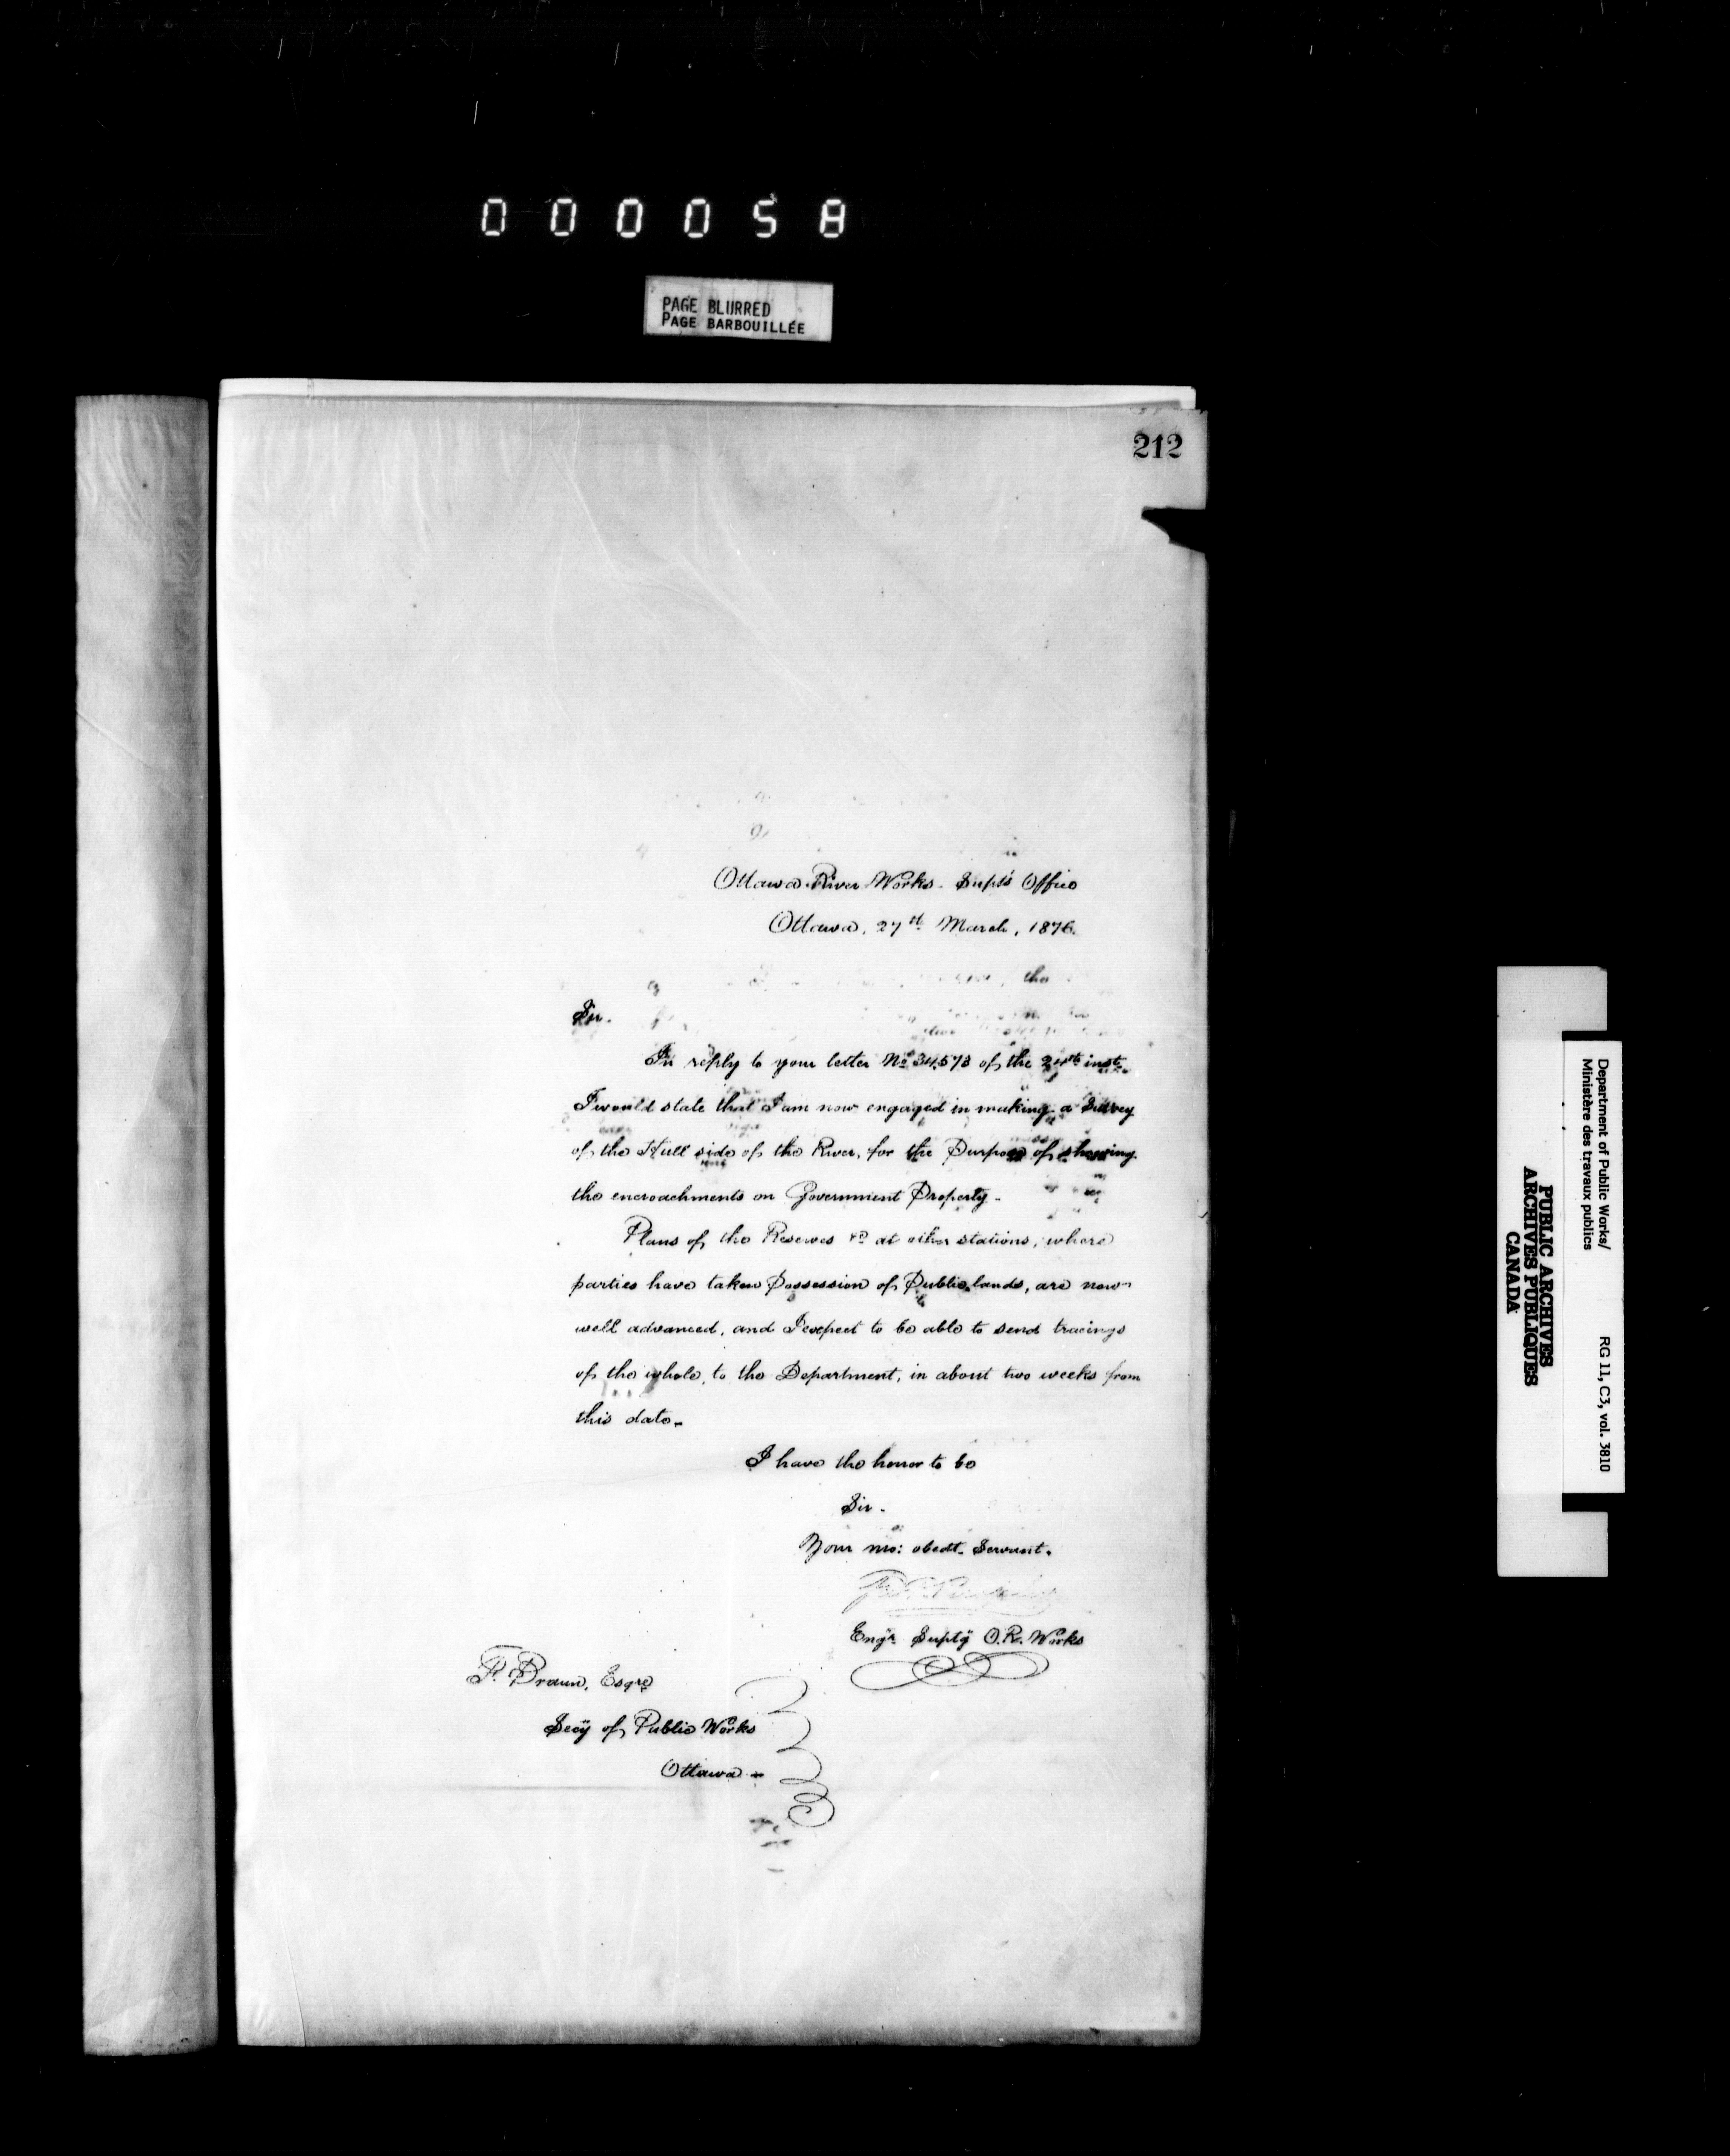 000058
PAGE BLURRED
PAGE BARBOUILLÉE
212
Ottawa River Works - Supt's Office
Ottawa, 27th March, 1876.
Sir.
In reply to your letter No 34573 of the 24th inst.
I would state that I am now engaged in making a Survey
of the Hull side of the River, for the Purpose of shewing
the encroachments on Government Property -
Plans of the Reserves &c at other stations, where
parties have taken Possession of Public lands, are now
well advanced, and I expect to be able to send tracings
of the whole, to the Department, in about two weeks from
this date -
I have the honor to be
Sir -
Your mo: obedt. Servant.
Engr. Supty O.R. Works
F. Braun, Esqre
Secy of Public Works
Ottawa -
Department of Public Works/
Ministère des travaux publics
RG 11, C3, vol. 3810
PUBLIC ARCHIVES
ARCHIVES PUBLIQUES
CANADA